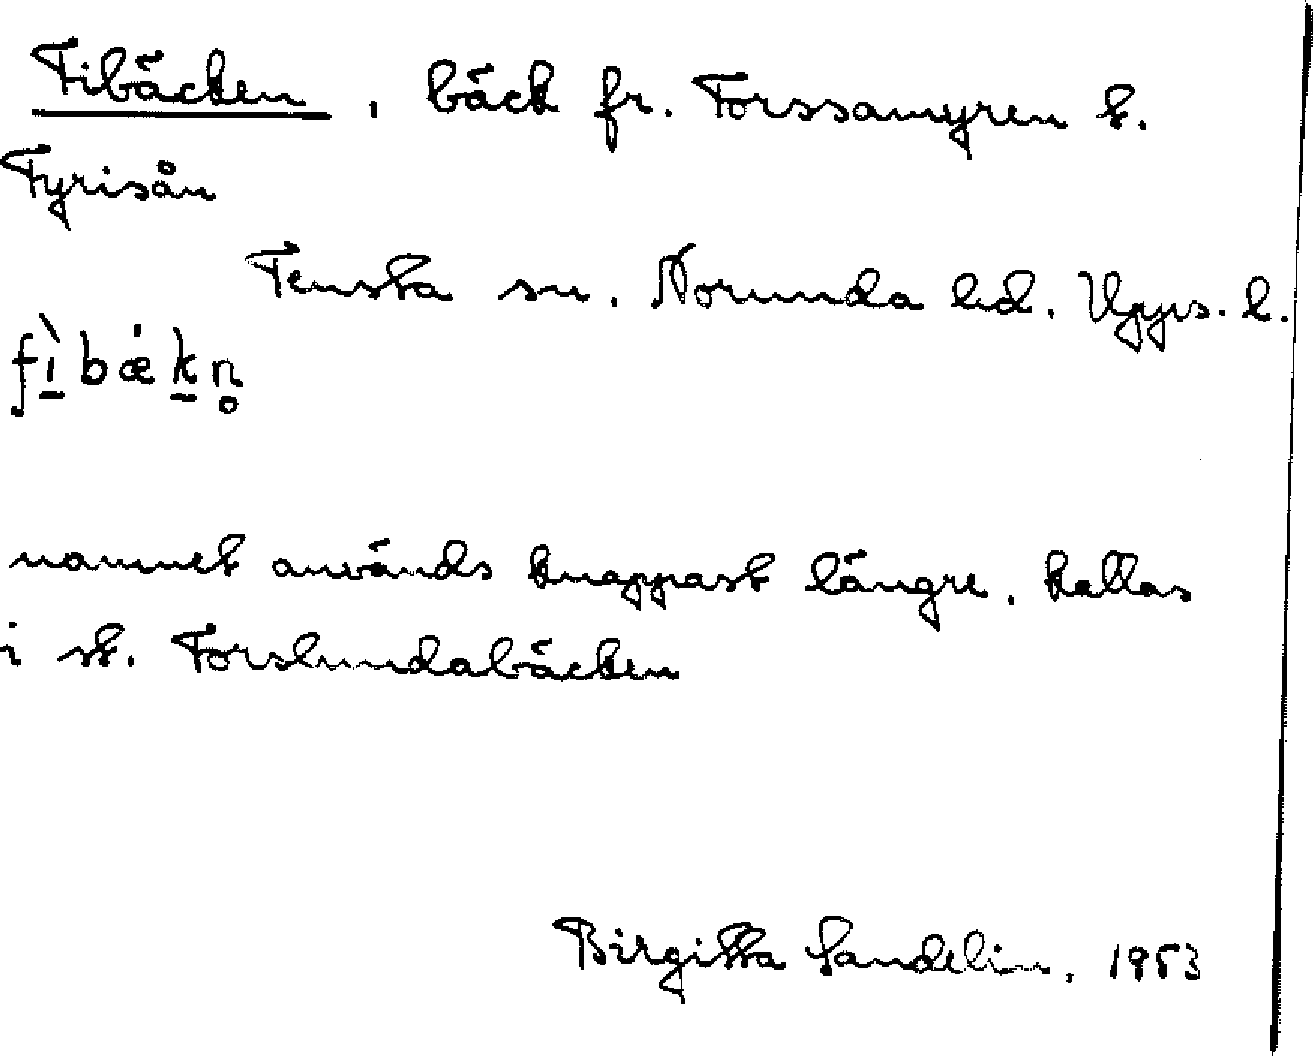 Fibäcken, bäck fr. Forssamyren t.
Fyrisån
Tensta sn. Norunda hd. Upps. l.
fì̠bǽk̠n̥
namnet används knappast längre, kallas
i st. Forslundabäcken
Birgitta Sandelin, 1953